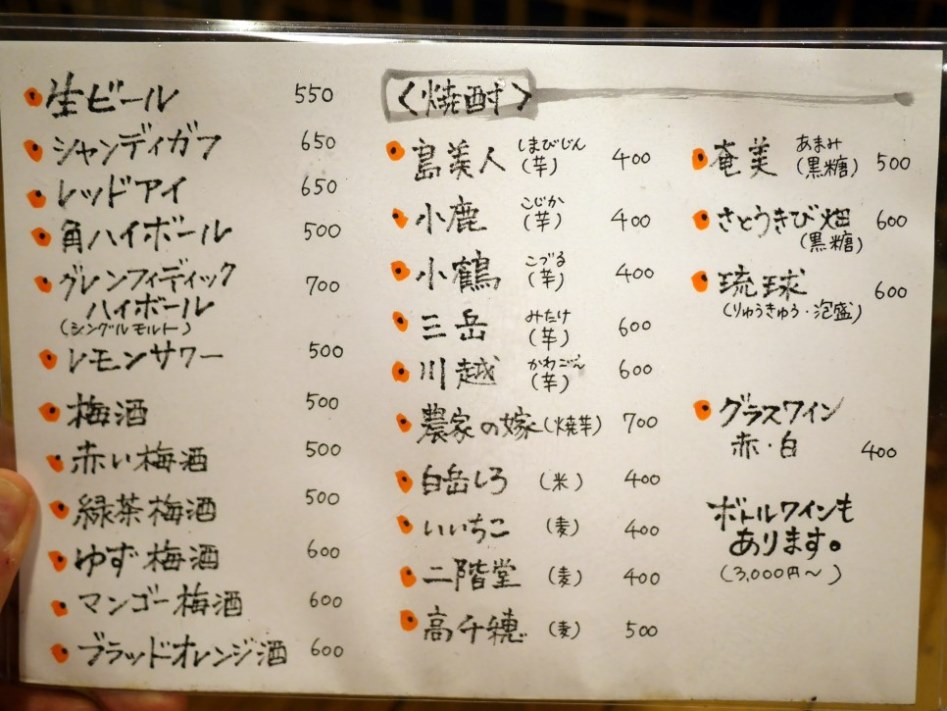 生ビール 550
シャンディガフ 650
レッドアイ 650
角ハイボール 500
グレンフィディック
ハイボール 700
(シングルモルト)
レモンサワー 500
梅酒 500
赤い梅酒 500
緑茶梅酒 500
ゆず梅酒 600
マンゴー梅酒 600
ブラッドオレンジ酒 600
〈焼酎〉
島美人 しまびじん (芋) 400
小鹿 こじか (芋) 400
小鶴 こづる (芋) 400
三岳 みたけ (芋) 600
川越 かわごえ (芋) 600
農家の嫁(焼芋) 700
白岳しろ (米) 400
いいちこ (麦) 400
二階堂 (麦) 400
高千穂 (麦) 500
奄美 あまみ (黒糖) 500
さとうきび畑 600
(黒糖)
琉球 600
(りゅうきゅう・泡盛)
グラスワイン
赤・白 400
ボトルワインも
あります。
(3,000円~)